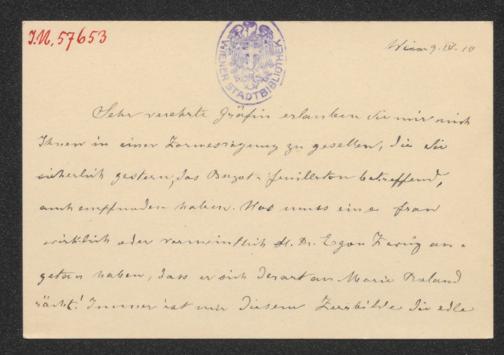 I.N. 57653
WIENER STADTBIBLIOTHEK
Wien 9. IV. 10
Sehr verehrte Gräfin erlauben Sie mir mich
Ihnen in einer Zornesregung zu gesellen, die Sie
sicherlich gestern, das Buzot-feuilleton betreffend,
auch empfunden haben. Was muss eine Frau
wirklich oder vermeintlich H. Dr. Egon Zweig an-
getan haben, dass er sich derart an Marie Roland
rächt! Immer ist mir diesem Zerrbilde die edle